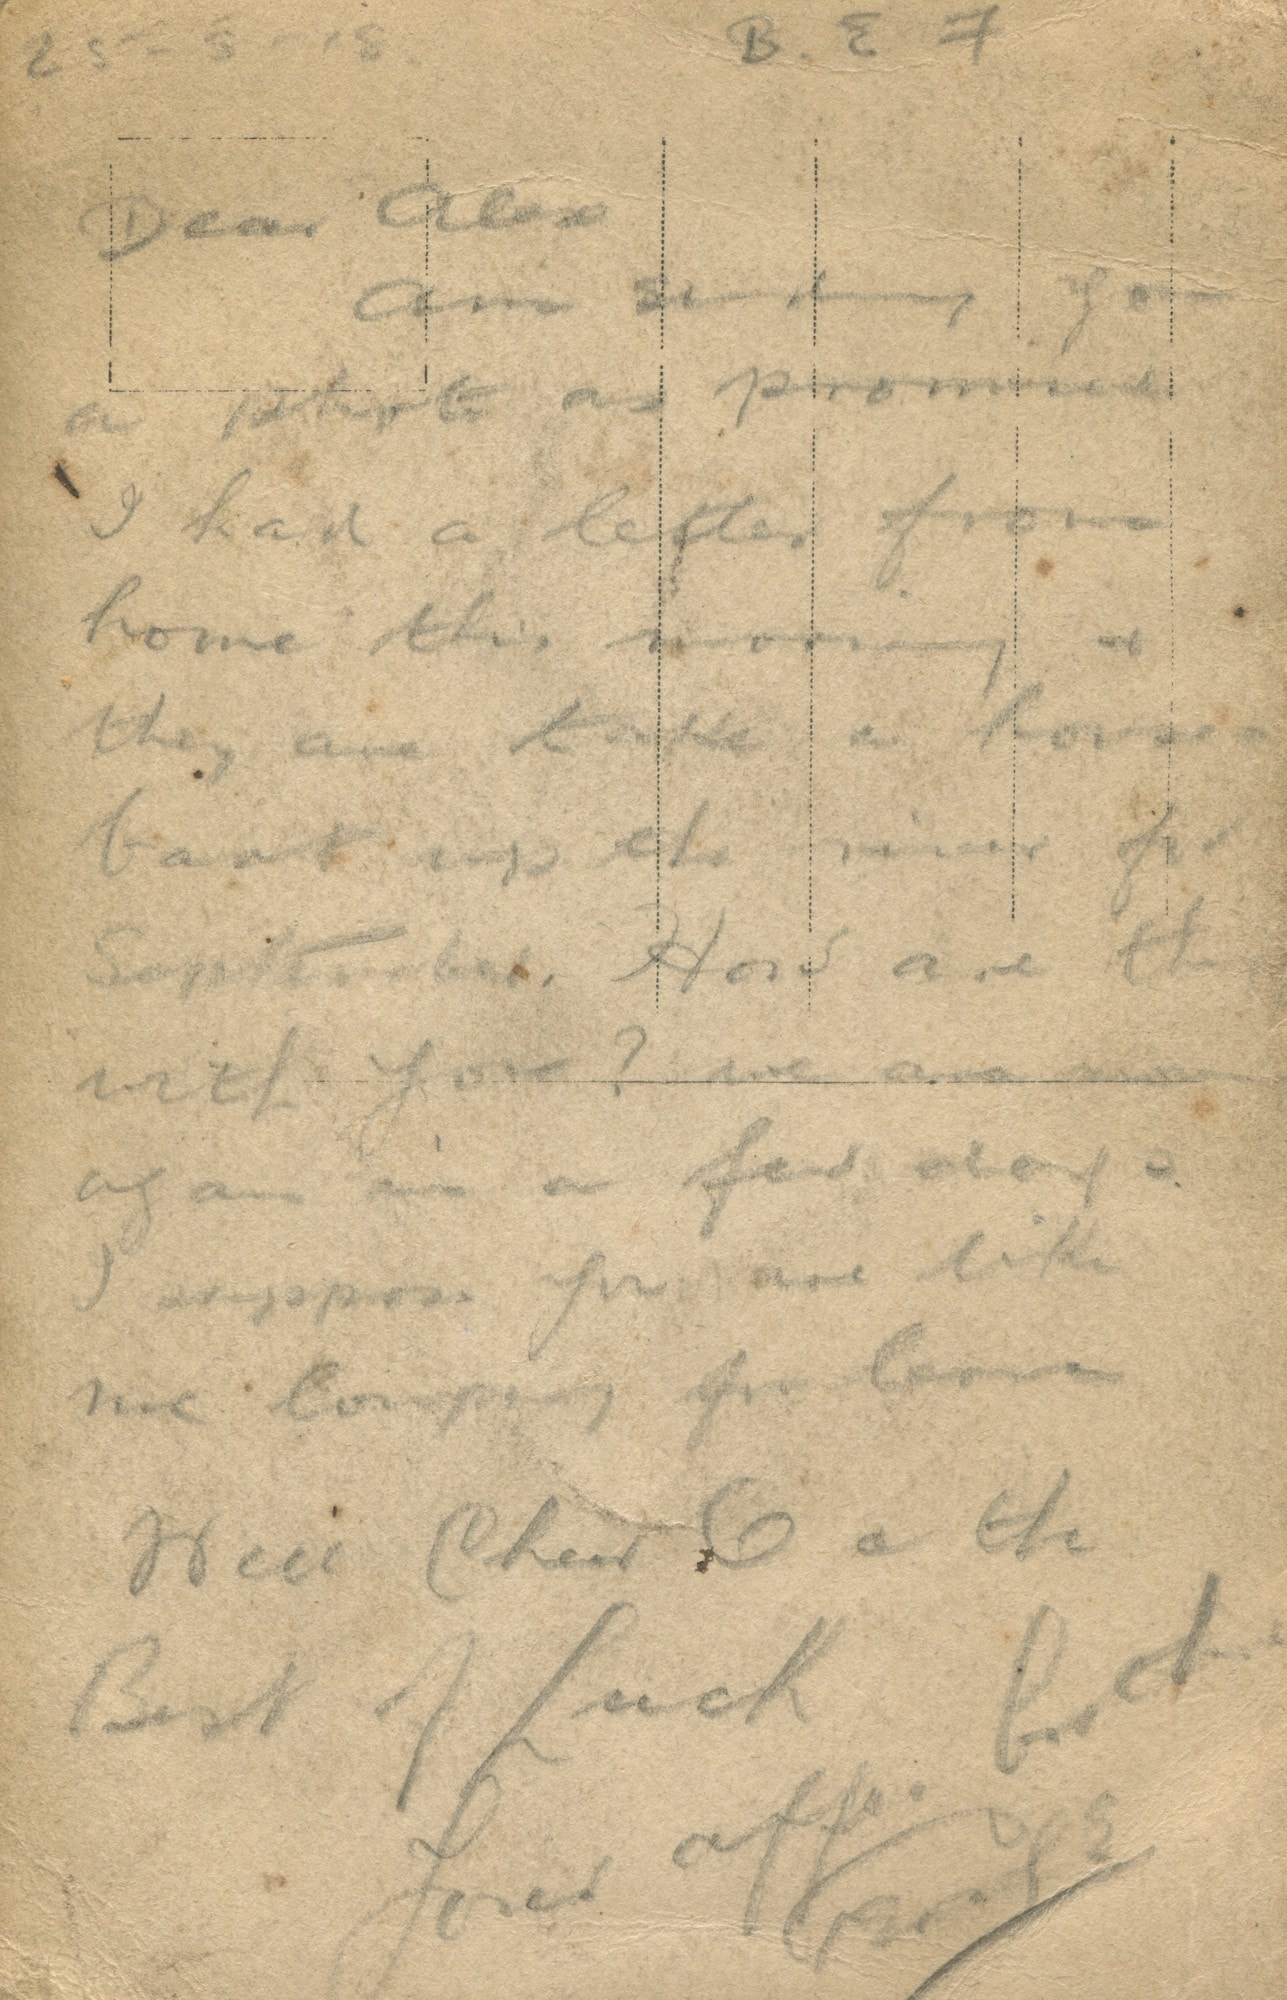 25-5-18 B.E.F
Dear Alex
Am sending you
a photo as promised
I had a letter from
home this morning &
they are take a house
boat up the river for
September. How are the
with you? we are
again in a few days
I suppose you are like
me longing for leave
Well Cheer O & the
Best of Luck
Your aff